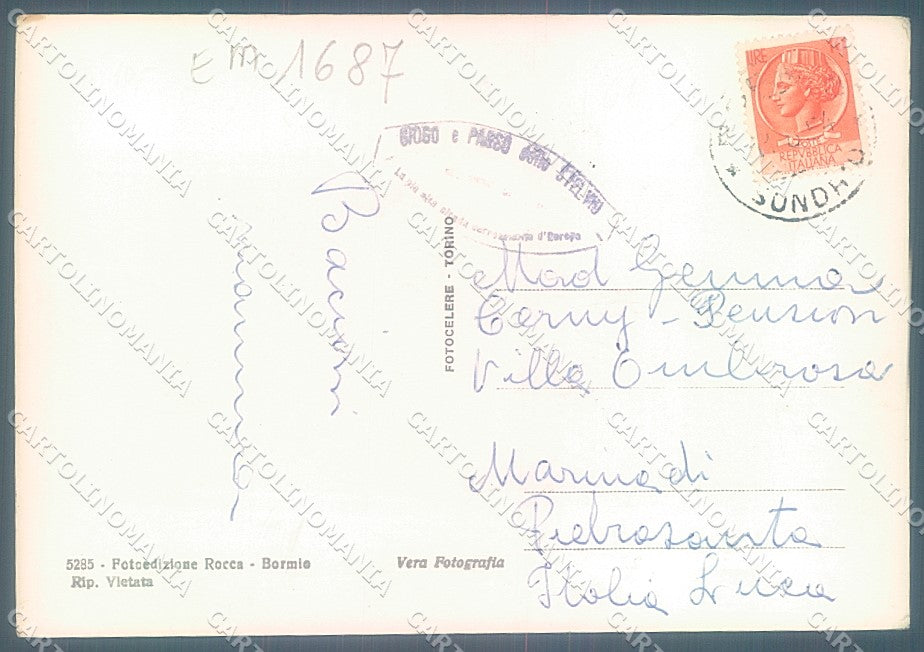 Em 1687
LIRE
POSTE
REPVBBLICA
ITALIANA
SONDRIO
GIOGO e PASSO dello STELVIO
La più alta strada carrozzabile d'Europa
Bacioni
FOTOCELERE - TORINO
Mad Gemma
Cerny - Pension
Villa Ombrosa
Marina di
Pietrasanta
Italia Lucca
5285 - Fotoedizione Rocca - Bormio
Rip. Vietata
Vera Fotografia
CARTOLINOMANIA